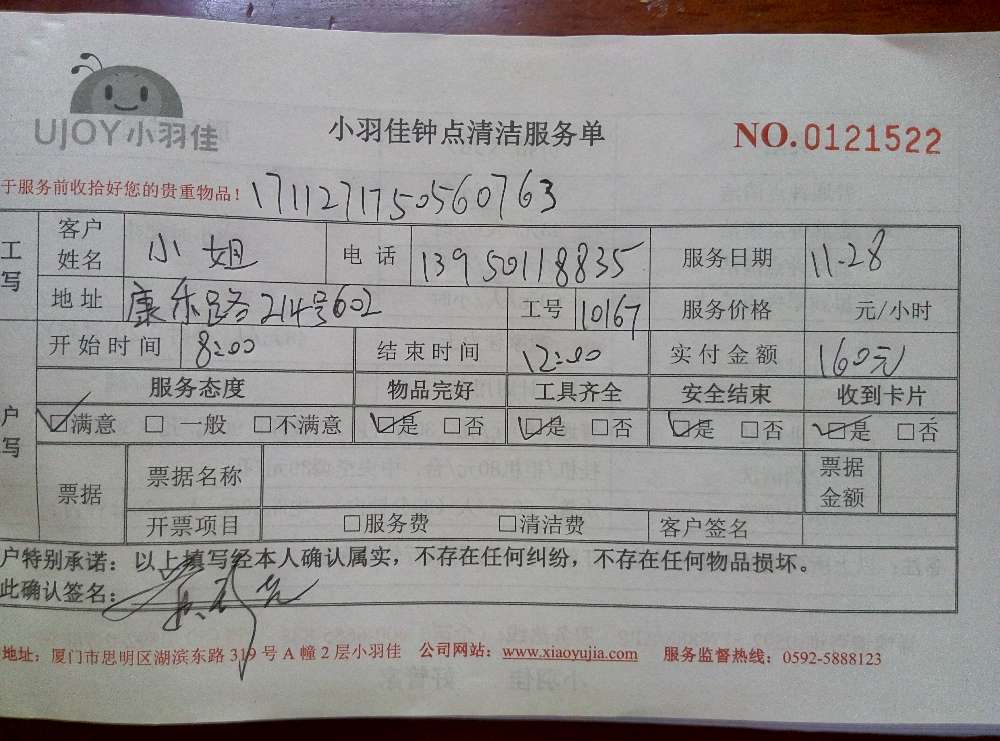 UJOY小羽佳
小羽佳钟点清洁服务单
NO.0121522
于服务前收拾好您的贵重物品！ 171127175056​0763
工写 客户姓名 小姐 电话 13950118835 服务日期 11.28
地址 康乐路214号602 工号 10167 服务价格 元/小时
开始时间 8:00 结束时间 12:00 实付金额 160元
户写 服务态度 物品完好 工具齐全 安全结束 收到卡片
☑满意 □ 一般 □不满意 ☑是 □否 ☑是 □否 ☑是 □否 ☑是 □否
票据 票据名称 票据金额
开票项目 □服务费 □清洁费 客户签名
户特别承诺：以上填写经本人确认属实，不存在任何纠纷，不存在任何物品损坏。
此确认签名：
地址：厦门市思明区湖滨东路319号A幢2层小羽佳 公司网站：www.xiaoyujia.com 服务监督热线：0592-5888123